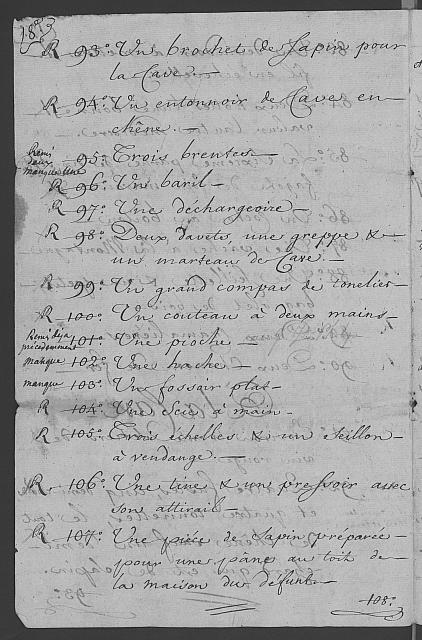 R 93.° Un brochet de sapin pour
la Cave. —
R 94.° Un entonnoir de Cave en
chêne. —
Remi deux manque une 95.° Trois brentes —
R 96.° Un baril —
R 97.° Une déchargeoire. —
R 98.° Deux davets, une greppe &
un marteau de Cave. —
R 99.° Un grand compas de tonelier
R 100.° Un couteau à deux mains —
Remi déja précedemment 101.° Une pioche —
manque 102.° Une hache —
manque 103.° Un fossoir plat —
R 104.° Une Scie à main —
R 105.° Trois échelles & un seillon
à vendange. —
R 106.° Une tine & un pressoir avec
son attirail
R 107.° Une pièce de sapin préparée
pour une pâne au toit de
la maison du défunt —
108.°